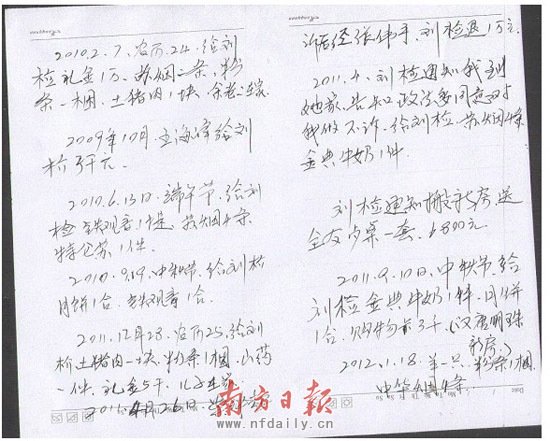 2010.2.7，农历24，给刘
检礼金1万、苏烟一条，粉
条一捆，土猪肉1块，
2009年10月，王海泽给刘
检
2010.6.15日，端午节，给刘
检铁观音1提，苏烟4条
特仑苏1件
2010.9.19，中秋节，给刘检
月饼1合，铁观音1合.
2011.12月28.农历25.给刘
检土猪肉一块，粉条1捆，山药
一件，礼金5千，
201 4月26日
诉后经张伟手，刘检退1万元.
2011.4，刘检通知我到
她家，告知政法委同意对
我做不诉，给刘检，苏烟4条
金典牛奶1件.
刘检通知搬新房送
全友 桌一套.6800元
2011.9.10日，中秋节，给
刘检金典牛奶1件，月饼
1合，购物卡3千(汉唐明珠
新房.)
2012.1.18，羊一只，粉条1捆，
4条
南方日报
www.nfdaily.cn